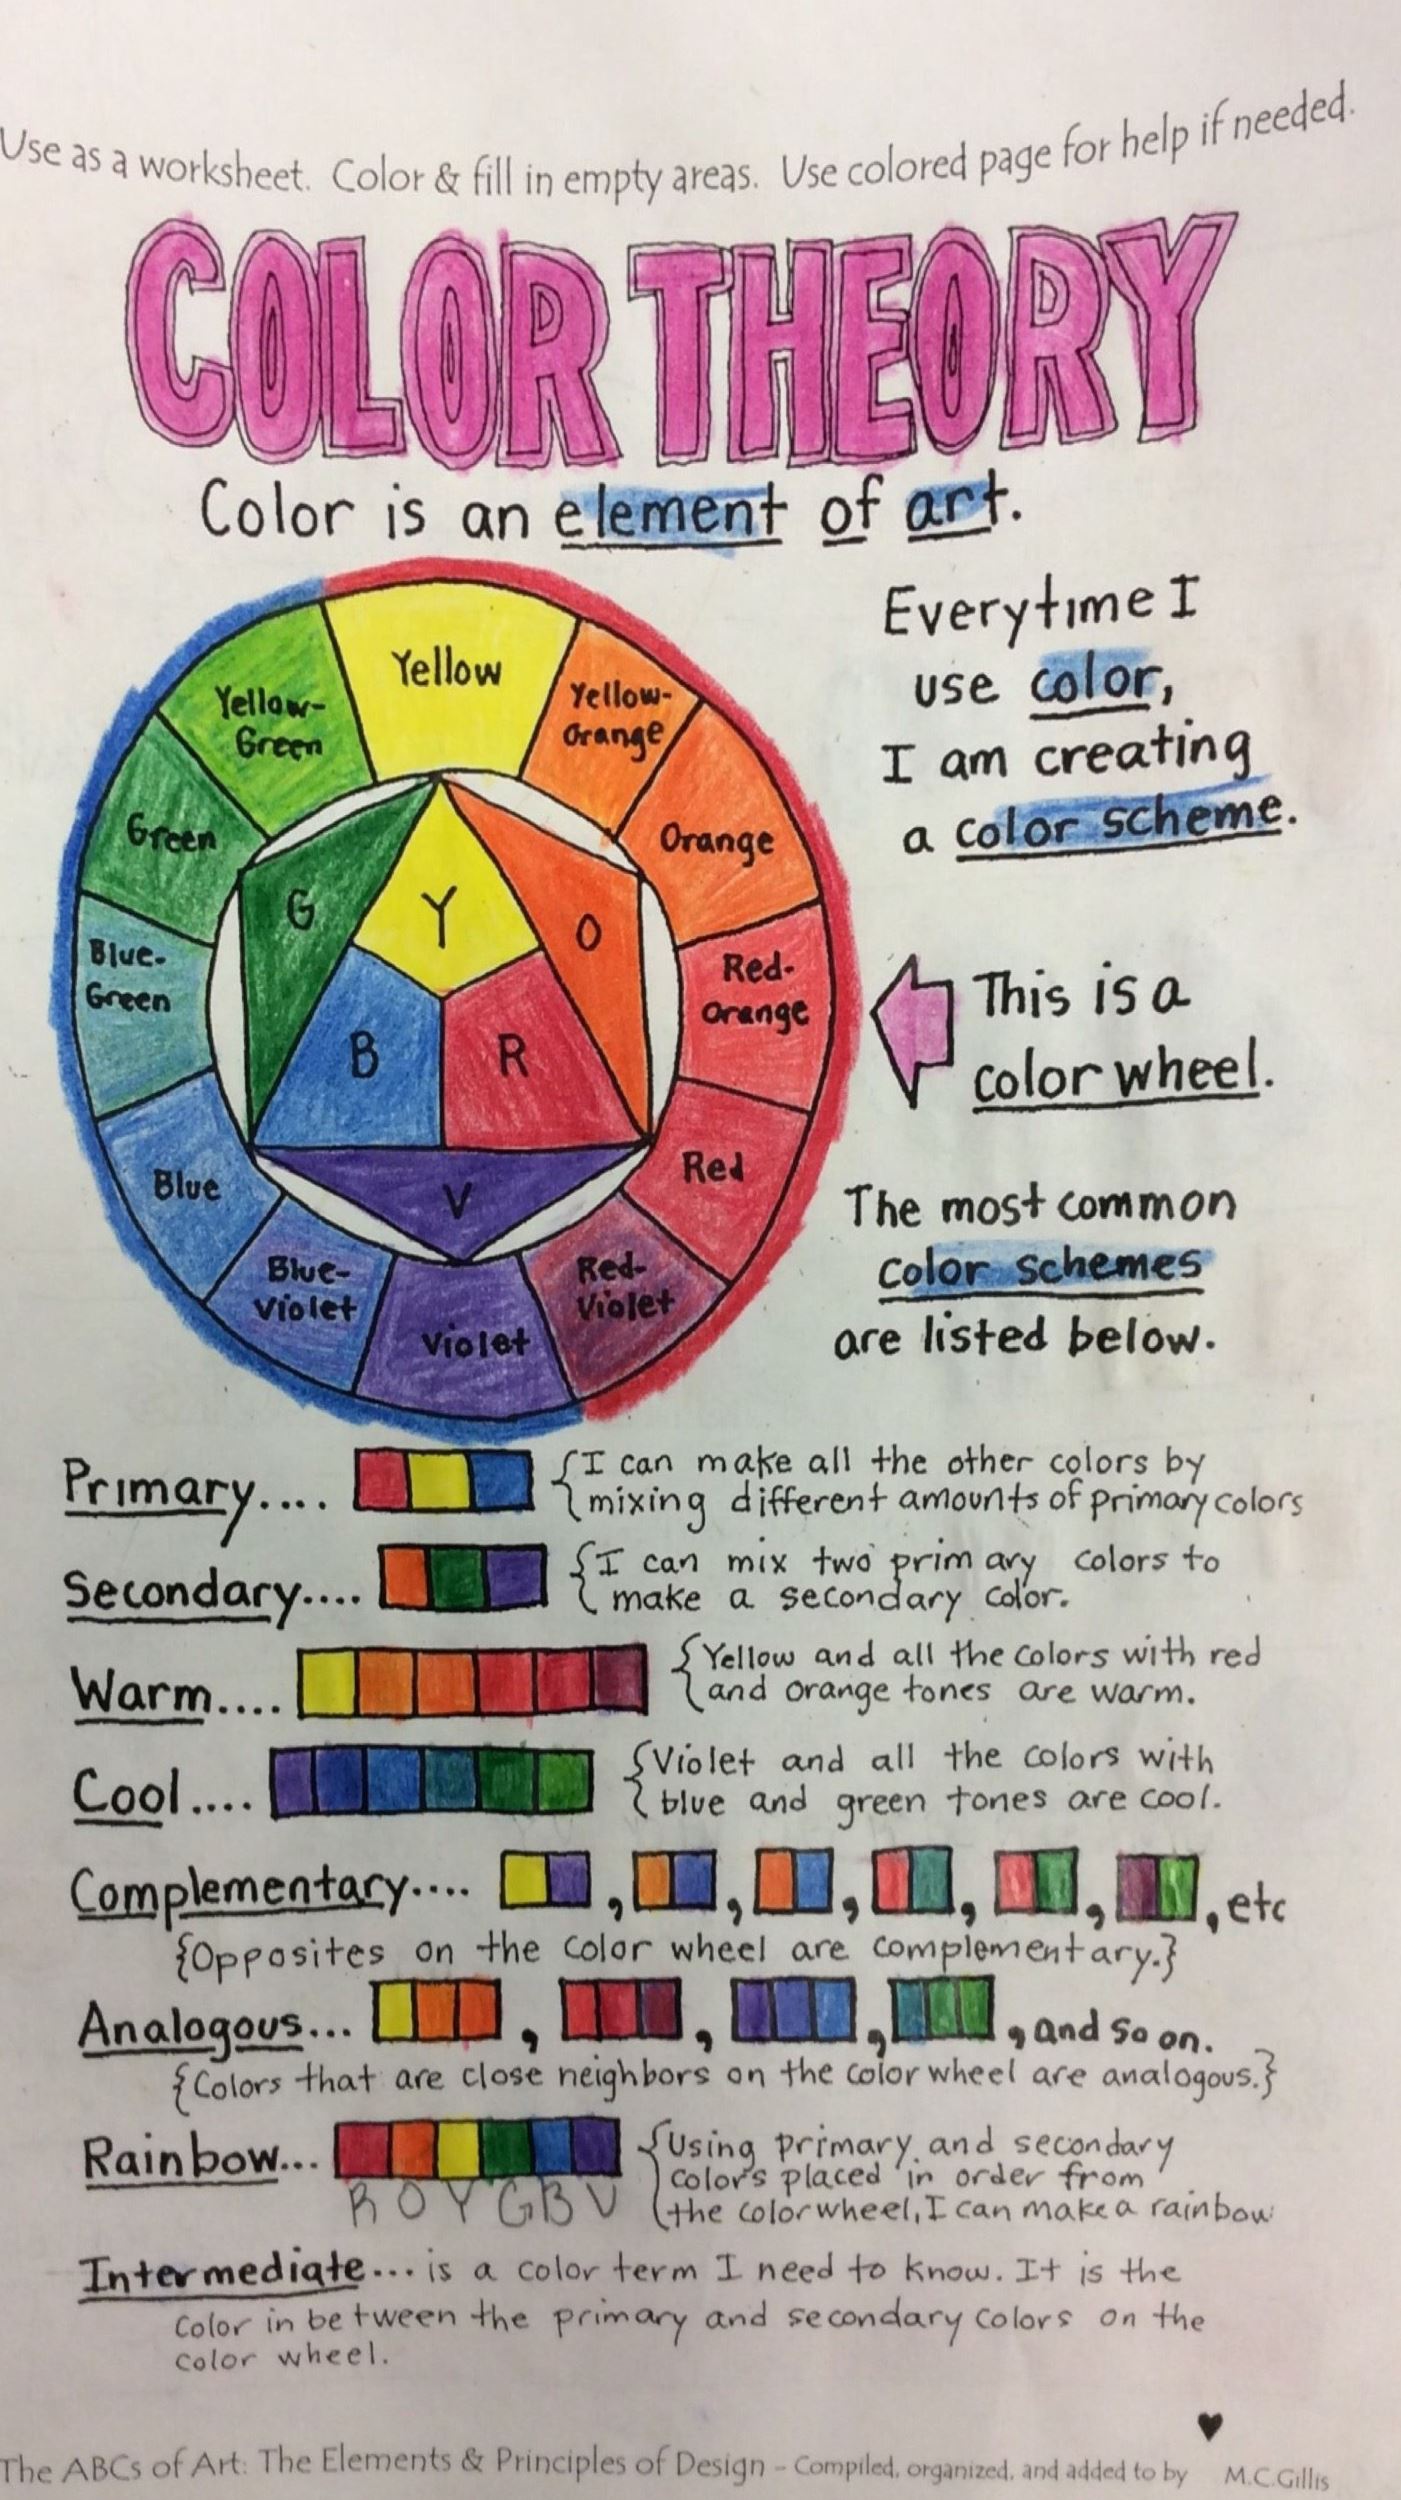 Use as a worksheet. Color & fill in empty areas. Use colored page for help if needed.
COLOR THEORY
Color is an element of art.
Everytime I
use color,
I am creating
a color scheme.
Yellow
Yellow-
Green
Yellow-
Orange
Green
Orange
G
Y
O
Blue-
Green
Red-
Orange
This is a
color wheel.
B
R
Blue
Red
V
The most common
color schemes
are listed below.
Blue-
Violet
Red-
Violet
Violet
Primary.... {I can make all the other colors by
mixing different amounts of primary colors
Secondary.... {I can mix two primary colors to
make a secondary color.
Warm.... {Yellow and all the colors with red
and orange tones are warm.
Cool.... {Violet and all the colors with
blue and green tones are cool.
Complementary.... , , , , , , etc
{Opposites on the color wheel are complementary.}
Analogous... , , , , and so on.
{Colors that are close neighbors on the color wheel are analogous.}
Rainbow... {Using primary and secondary
colors placed in order from
R O Y G B V the color wheel, I can make a rainbow
Intermediate... is a color term I need to know. It is the
color in between the primary and secondary colors on the
color wheel.
The ABCs of Art: The Elements & Principles of Design - Compiled, organized, and added to by M.C.Gillis